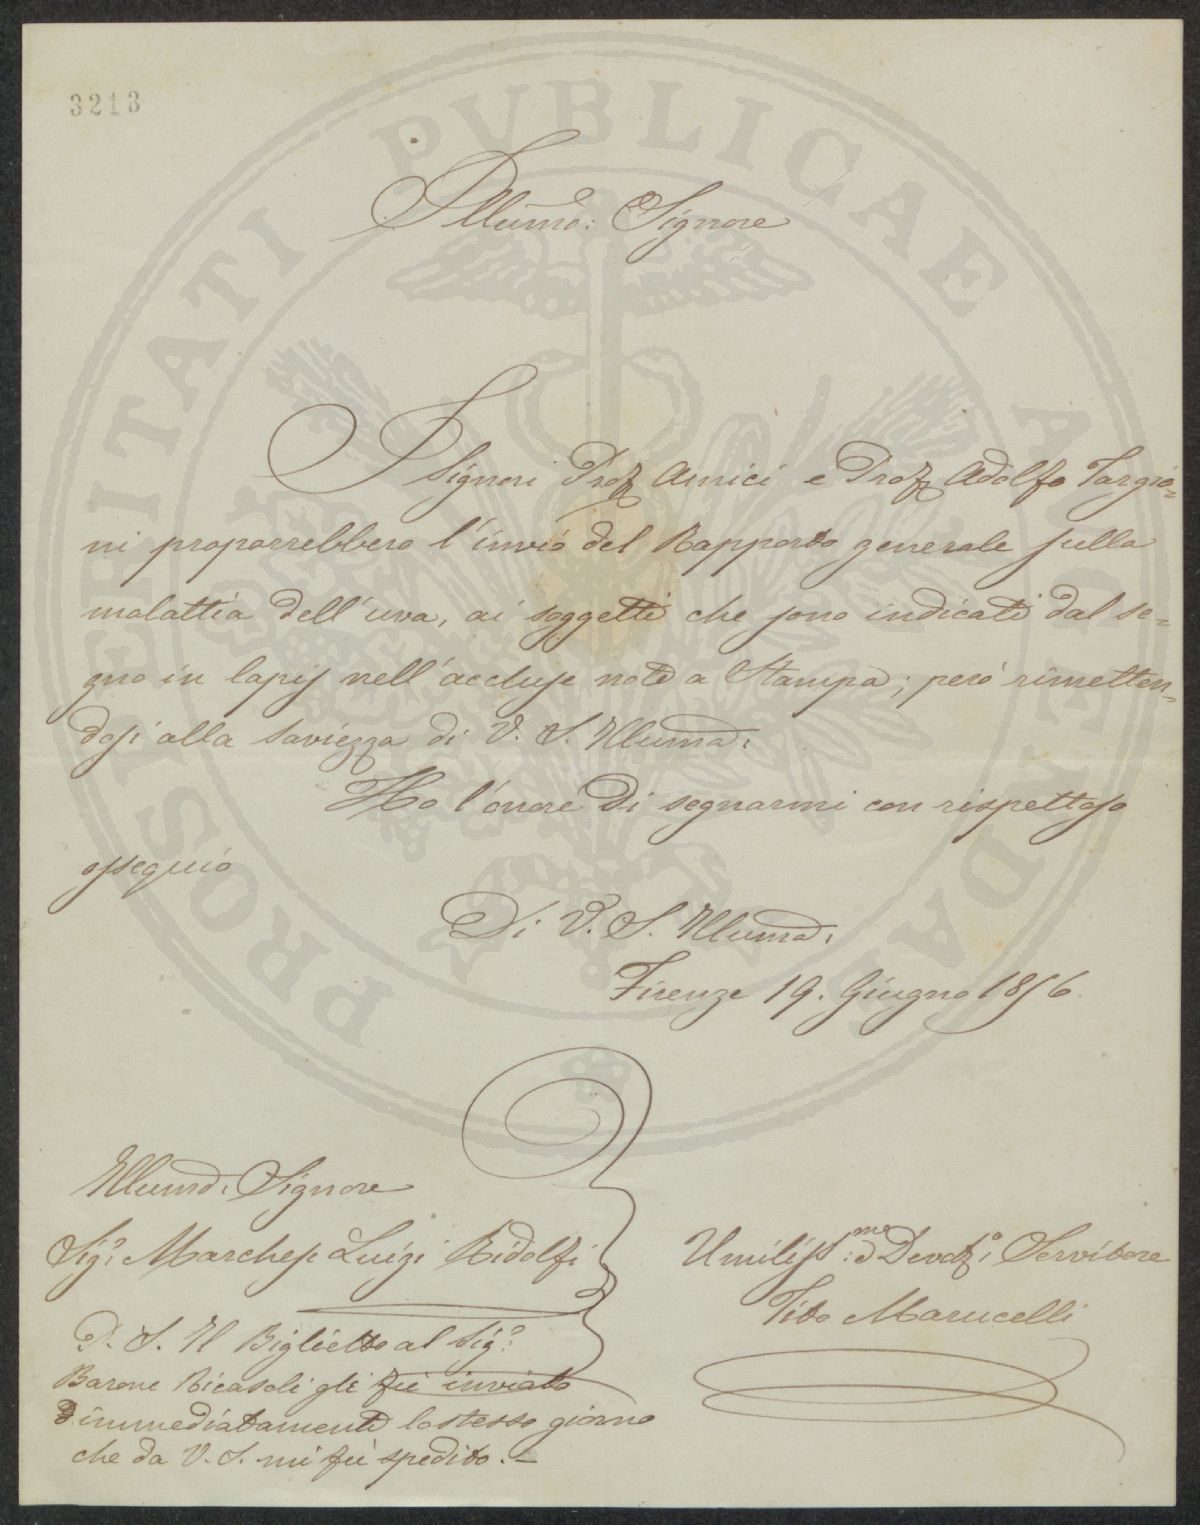 3213
PROSPERITATI PVBLICAE AVGENDAE
Illumo: Signore
I Signori Prof. Amici e Prof. Adolfo Targio=
ni proporrebbero l'invio del Rapporto generale sulla
malattia dell'uva, ai soggetti che sono indicati dal se=
gno in lapis nell'accluse note a Stampa; però rimetten=
dosi alla saviezza di V. S. Illuma.
Ho l'onore di segnarmi con rispettoso
ossequio
Di V. S. Illuma.
Firenze 19. Giugno 1856
Illumo. Signore
Sigr. Marchese Luigi Ridolfi
Umiliss:mo Devot.o Servitore
Tito Marucelli
P. S. Il Biglietto al Sigr.
Barone Ricasoli gli fù inviato
immediatamente lo stesso giorno
che da V. S. mi fù spedito. –